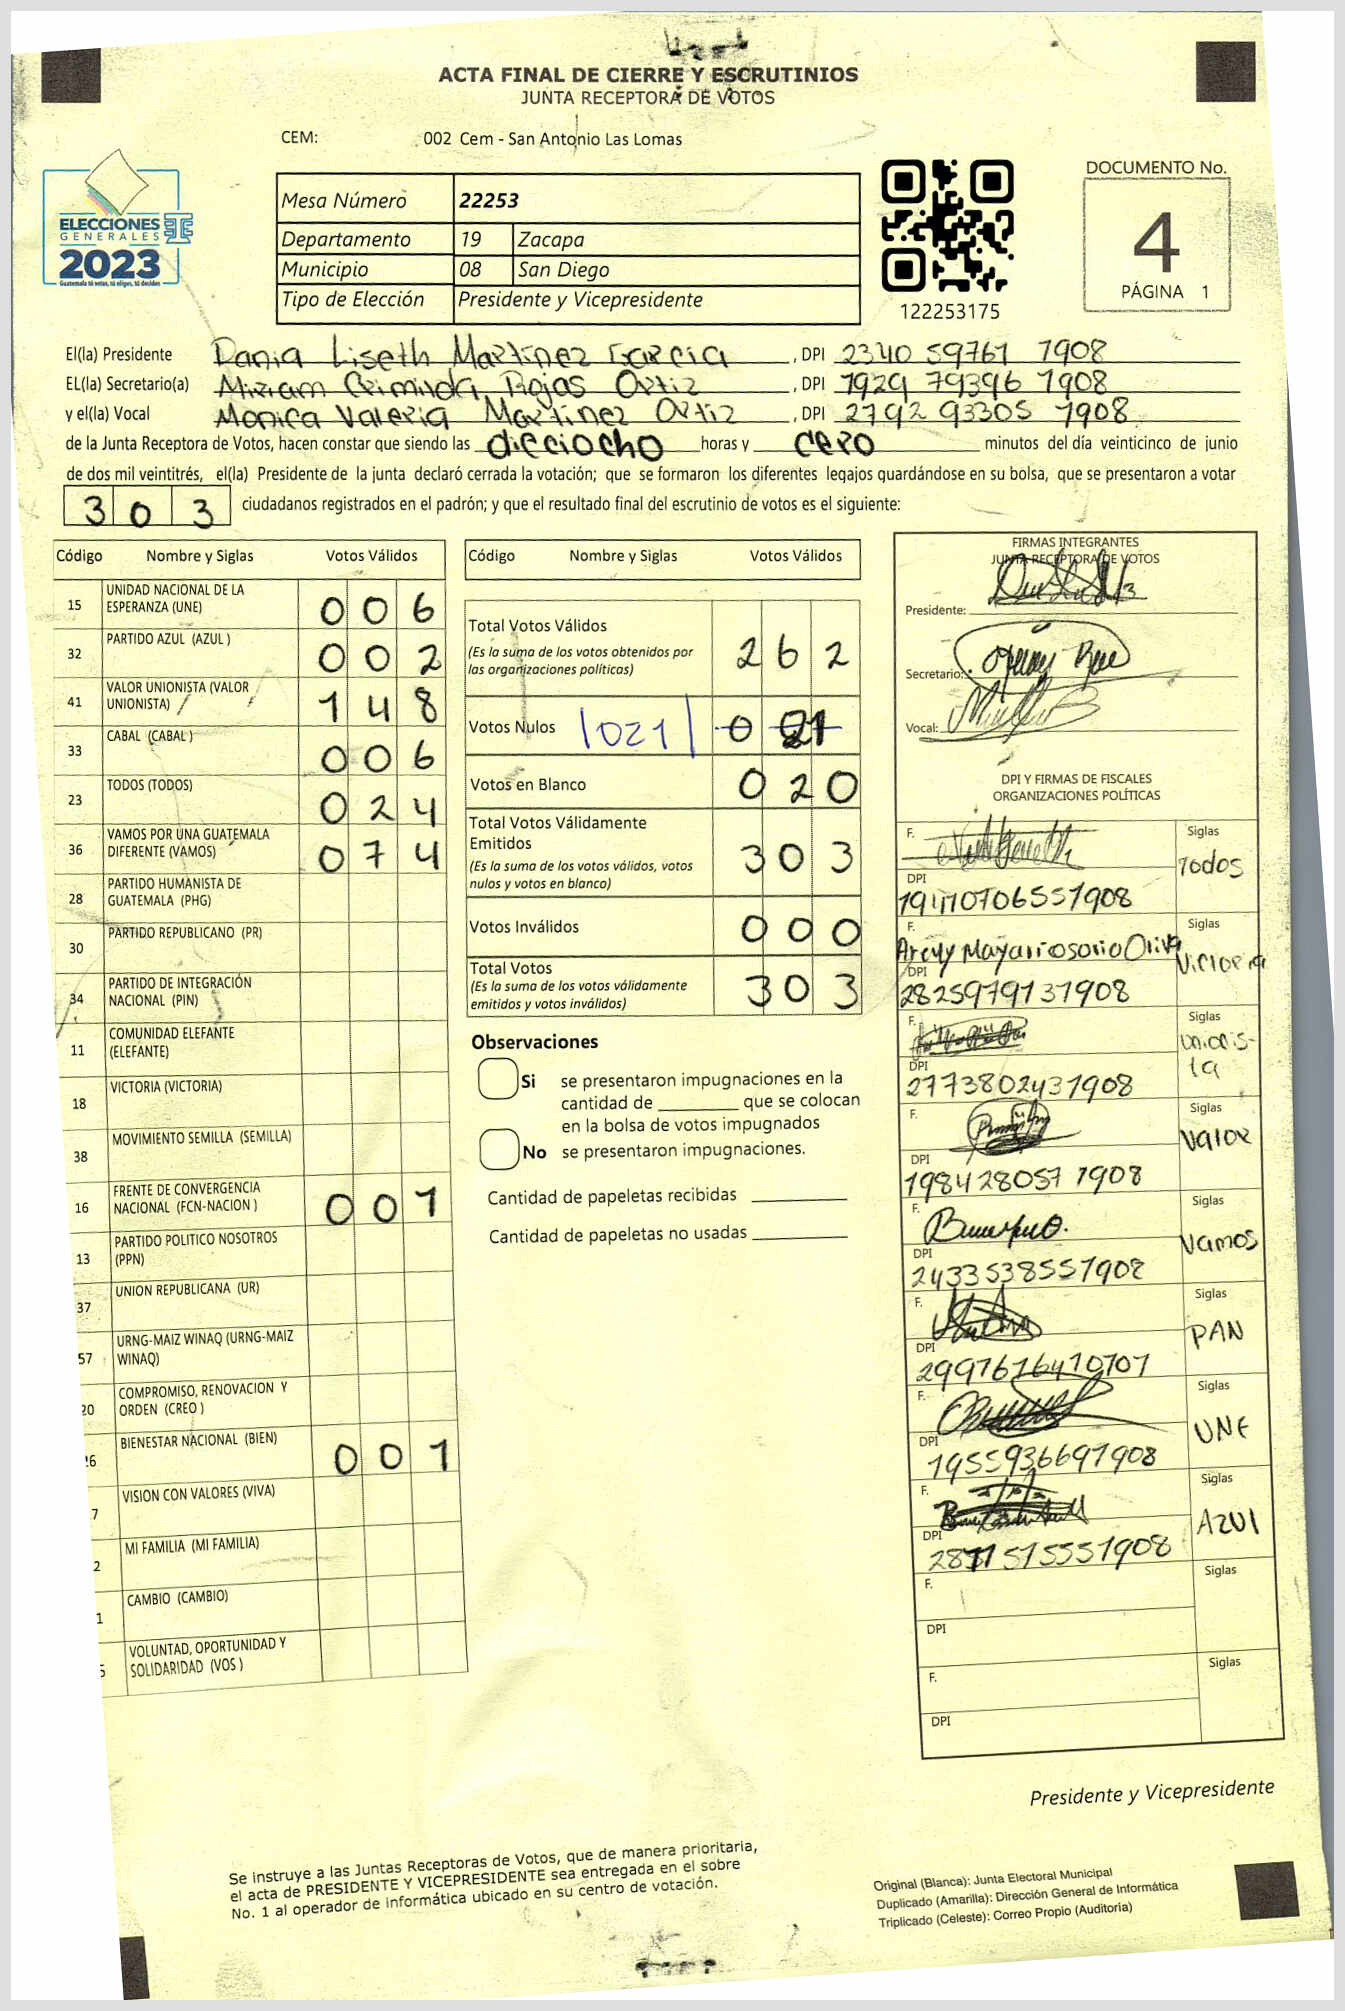 ACTA FINAL DE CIERRE Y ESCRUTINIOS
JUNTA RECEPTORA DE VOTOS
CEM: 002 Cem - San Antonio Las Lomas
ELECCIONES
GENERALES
2023
Guatemala tú votas, tú eliges, tú decides
Mesa Número 22253
Departamento 19 Zacapa
Municipio 08 San Diego
Tipo de Elección Presidente y Vicepresidente
122253175
DOCUMENTO No.
4
PÁGINA 1
El(la) Presidente Dania Liseth Martinez Garcia , DPI 2340 59761 1908
EL(la) Secretario(a) Miriam Rojas Ortiz , DPI 1929 79396 1908
y el(la) Vocal Monica Valeria Martinez Ortiz , DPI 2792 93305 1908
de la Junta Receptora de Votos, hacen constar que siendo las dieciocho horas y cero minutos del día veinticinco de junio
de dos mil veintitrés, el(la) Presidente de la junta declaró cerrada la votación; que se formaron los diferentes legajos guardándose en su bolsa, que se presentaron a votar
303 ciudadanos registrados en el padrón; y que el resultado final del escrutinio de votos es el siguiente:
Código Nombre y Siglas Votos Válidos
15 UNIDAD NACIONAL DE LA
ESPERANZA (UNE) 006
32 PARTIDO AZUL (AZUL ) 002
41 VALOR UNIONISTA (VALOR
UNIONISTA) 148
33 CABAL (CABAL ) 006
23 TODOS (TODOS) 024
36 VAMOS POR UNA GUATEMALA
DIFERENTE (VAMOS) 074
28 PARTIDO HUMANISTA DE
GUATEMALA (PHG)
30 PARTIDO REPUBLICANO (PR)
34 PARTIDO DE INTEGRACIÓN
NACIONAL (PIN)
11 COMUNIDAD ELEFANTE
(ELEFANTE)
18 VICTORIA (VICTORIA)
38 MOVIMIENTO SEMILLA (SEMILLA)
16 FRENTE DE CONVERGENCIA
NACIONAL (FCN-NACION ) 001
13 PARTIDO POLITICO NOSOTROS
(PPN)
37 UNION REPUBLICANA (UR)
57 URNG-MAIZ WINAQ (URNG-MAIZ
WINAQ)
20 COMPROMISO, RENOVACION Y
ORDEN (CREO )
26 BIENESTAR NACIONAL (BIEN) 001
7 VISION CON VALORES (VIVA)
2 MI FAMILIA (MI FAMILIA)
1 CAMBIO (CAMBIO)
5 VOLUNTAD, OPORTUNIDAD Y
SOLIDARIDAD (VOS )
Código Nombre y Siglas Votos Válidos
Total Votos Válidos 262
(Es la suma de los votos obtenidos por
las organizaciones políticas)
Votos Nulos 021 021
Votos en Blanco 020
Total Votos Válidamente
Emitidos 303
(Es la suma de los votos válidos, votos
nulos y votos en blanco)
Votos Inválidos 000
Total Votos 303
(Es la suma de los votos válidamente
emitidos y votos inválidos)
Observaciones
Si se presentaron impugnaciones en la
cantidad de ________ que se colocan
en la bolsa de votos impugnados
No se presentaron impugnaciones.
Cantidad de papeletas recibidas
Cantidad de papeletas no usadas
FIRMAS INTEGRANTES
JUNTA RECEPTORA DE VOTOS
Presidente:
Secretario:
Vocal:
DPI Y FIRMAS DE FISCALES
ORGANIZACIONES POLÍTICAS
F. Siglas
Todos
DPI
F. Siglas
Victoria
DPI
2825979131908
F. Siglas
unionis-
ta
DPI
2773802431908
F. Siglas
Valor
DPI
1984280571908
F. Siglas
Vamos
DPI
2433538551908
F. Siglas
PAN
DPI
2997616410101
F. Siglas
UNE
DPI
1955936691908
F. Siglas
AZUl
DPI
F. Siglas
DPI
F. Siglas
DPI
Presidente y Vicepresidente
Se instruye a las Juntas Receptoras de Votos, que de manera prioritaria,
el acta de PRESIDENTE Y VICEPRESIDENTE sea entregada en el sobre
No. 1 al operador de informática ubicado en su centro de votación.
Original (Blanca): Junta Electoral Municipal
Duplicado (Amarilla): Dirección General de Informática
Triplicado (Celeste): Correo Propio (Auditoría)